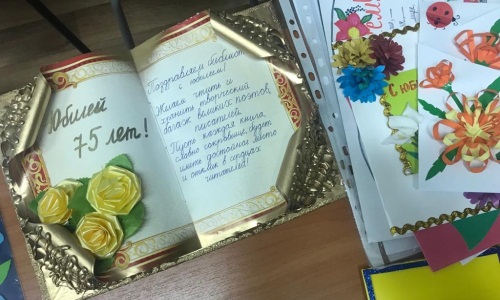 Юбилей
75 лет!
Поздравляем библиотеку
с юбилеем!
Желаем чтить и
хранить творческий
багаж великих поэтов,
писателей.
Пусть каждая книга,
словно сокровище, будет
иметь достойное место
и отклик в сердцах
читателей!
С Ю